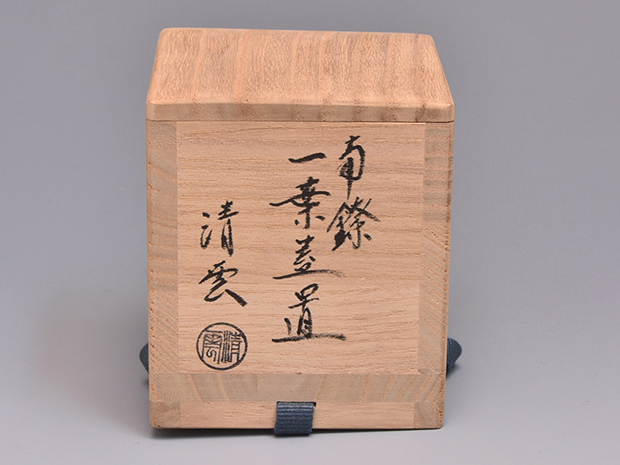 南鐐
一葉蓋置
清雲
清雲